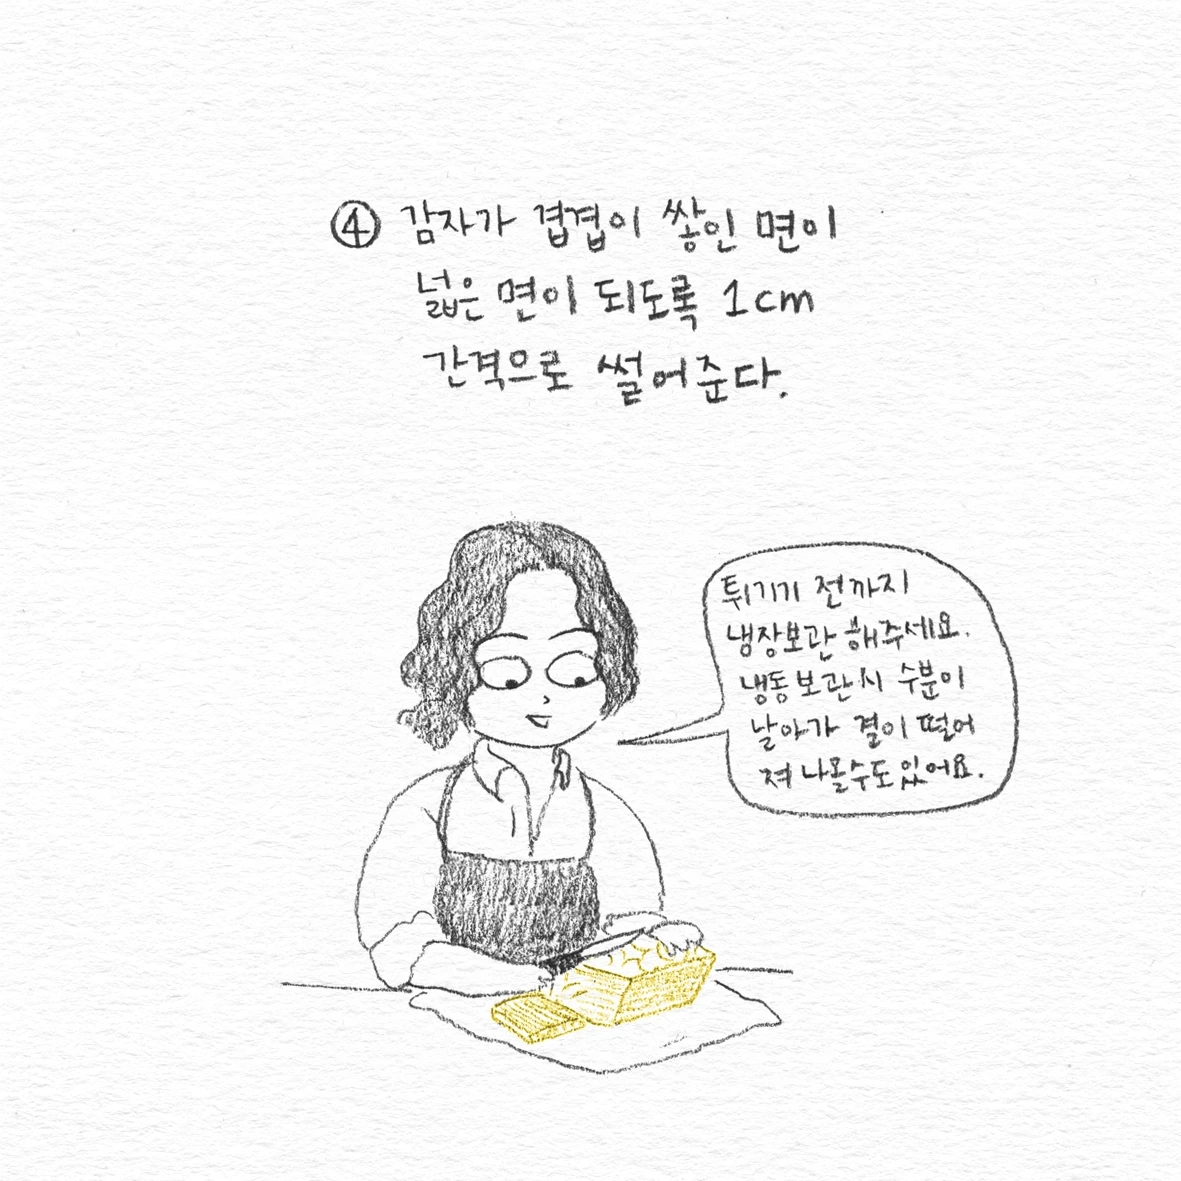 ④ 감자가 겹겹이 쌓인 면이
넓은 면이 되도록 1cm
간격으로 썰어준다.
튀기기 전까지
냉장보관 해주세요.
냉동보관시 수분이
날아가 결이 떨어
져 나올수도있어요.